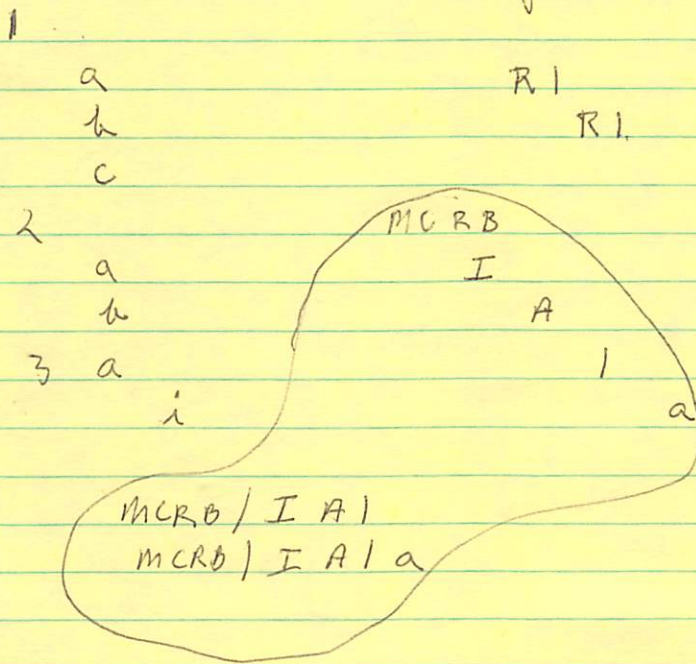 1
a R 1
b R 1.
c
2 MCRB
a I
b A
3 a 1
i a
MCRB / I A 1
MCRB / I A 1 a